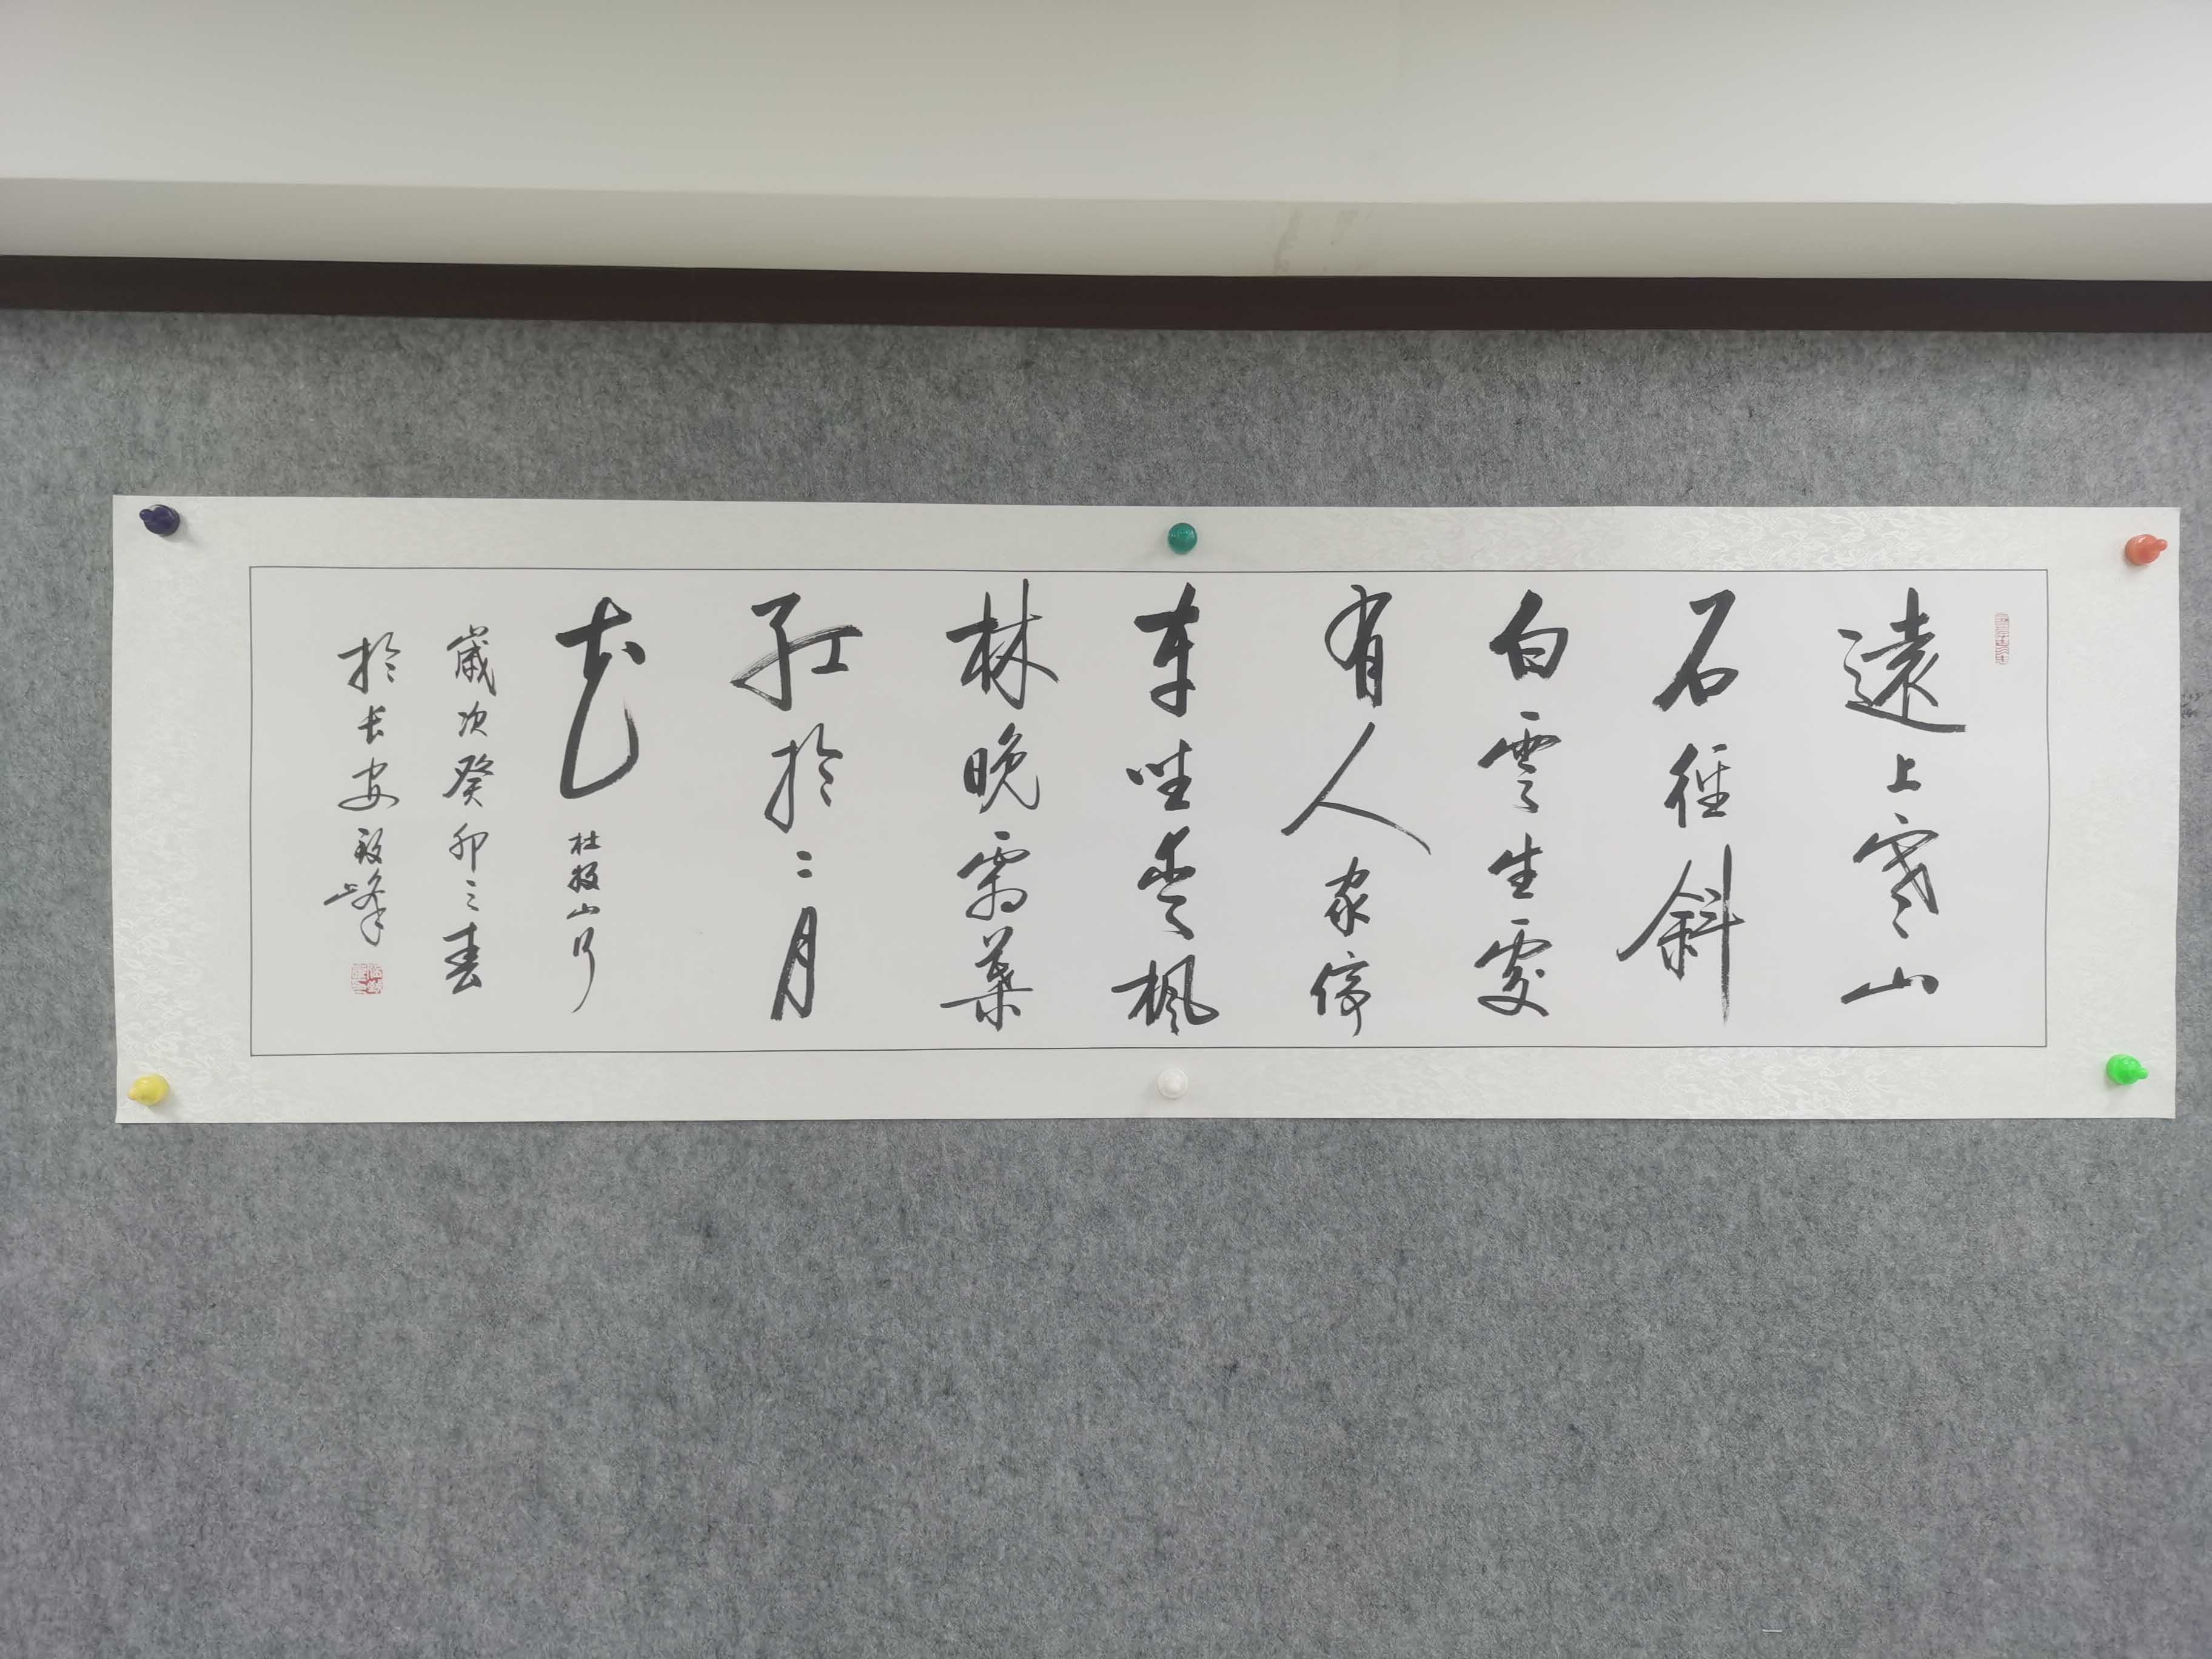 遠上寒山
石徑斜
白雲生處
有人家停
車坐愛楓
林晚霜葉
红於二月
花
杜牧山行
歲次癸卯之春
於长安 峰